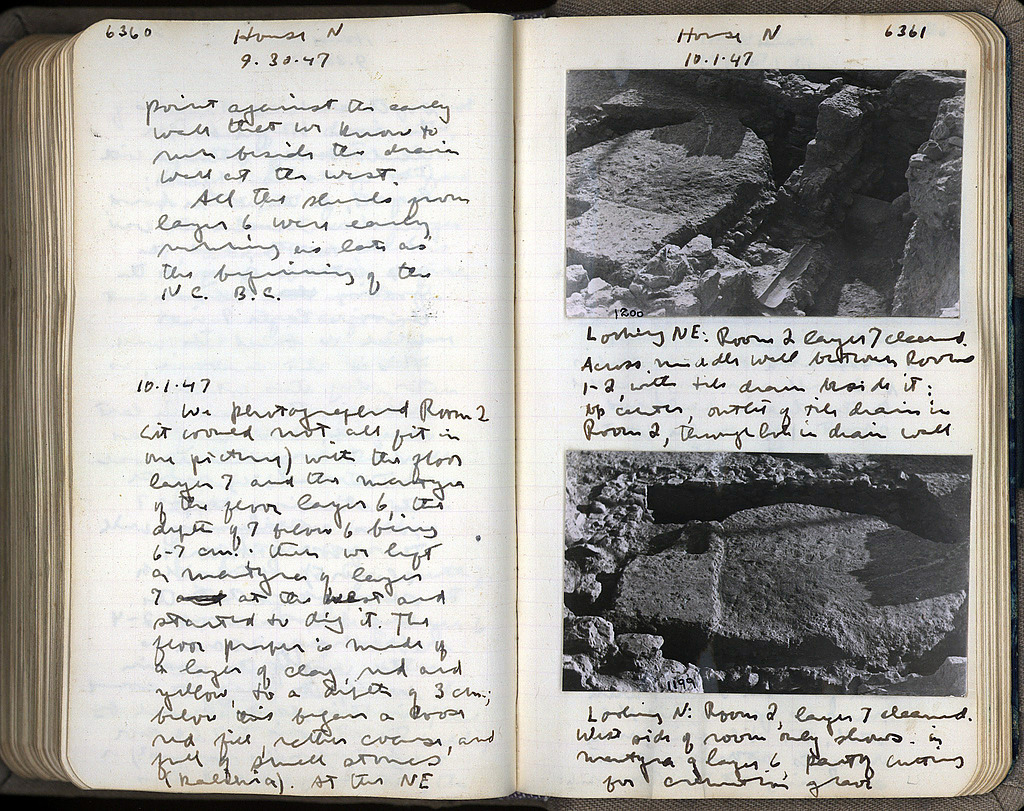 6360
House N
9.30.47
point against the early
wall that we know to
run beside the drain
wall at the west.
All the sherds from
layer 6 were early
running as late as
the beginning of the
IV C. B.C.
10.1.47
We photographed Room 2
(it would not all fit in
one picture) with the floor
layer 7 and the martyra
of the floor layer 6, the
depth of 7 below 6 being
6-7 cm.. then we left
a martyra of layer
7 at the west and
started to dig it. The
floor proper is made of
a layer of clay, red and
yellow, to a depth of 3 cm;
below this began a loose
red fill, rather coarse, and
full of small stones
(kalikia). At the NE
House N
6361
10.1.47
1200
Looking NE: Room 2 layer 7 cleaned.
Across middle wall between Rooms
1-2, with tile drain beside it:
up center, outlet of tile drain in
Room 2, through in drain wall
1199
Looking N: Room 2, layer 7 cleaned.
West side of room only shows.
martyra of layer 6, partly cutting
for cremation grave